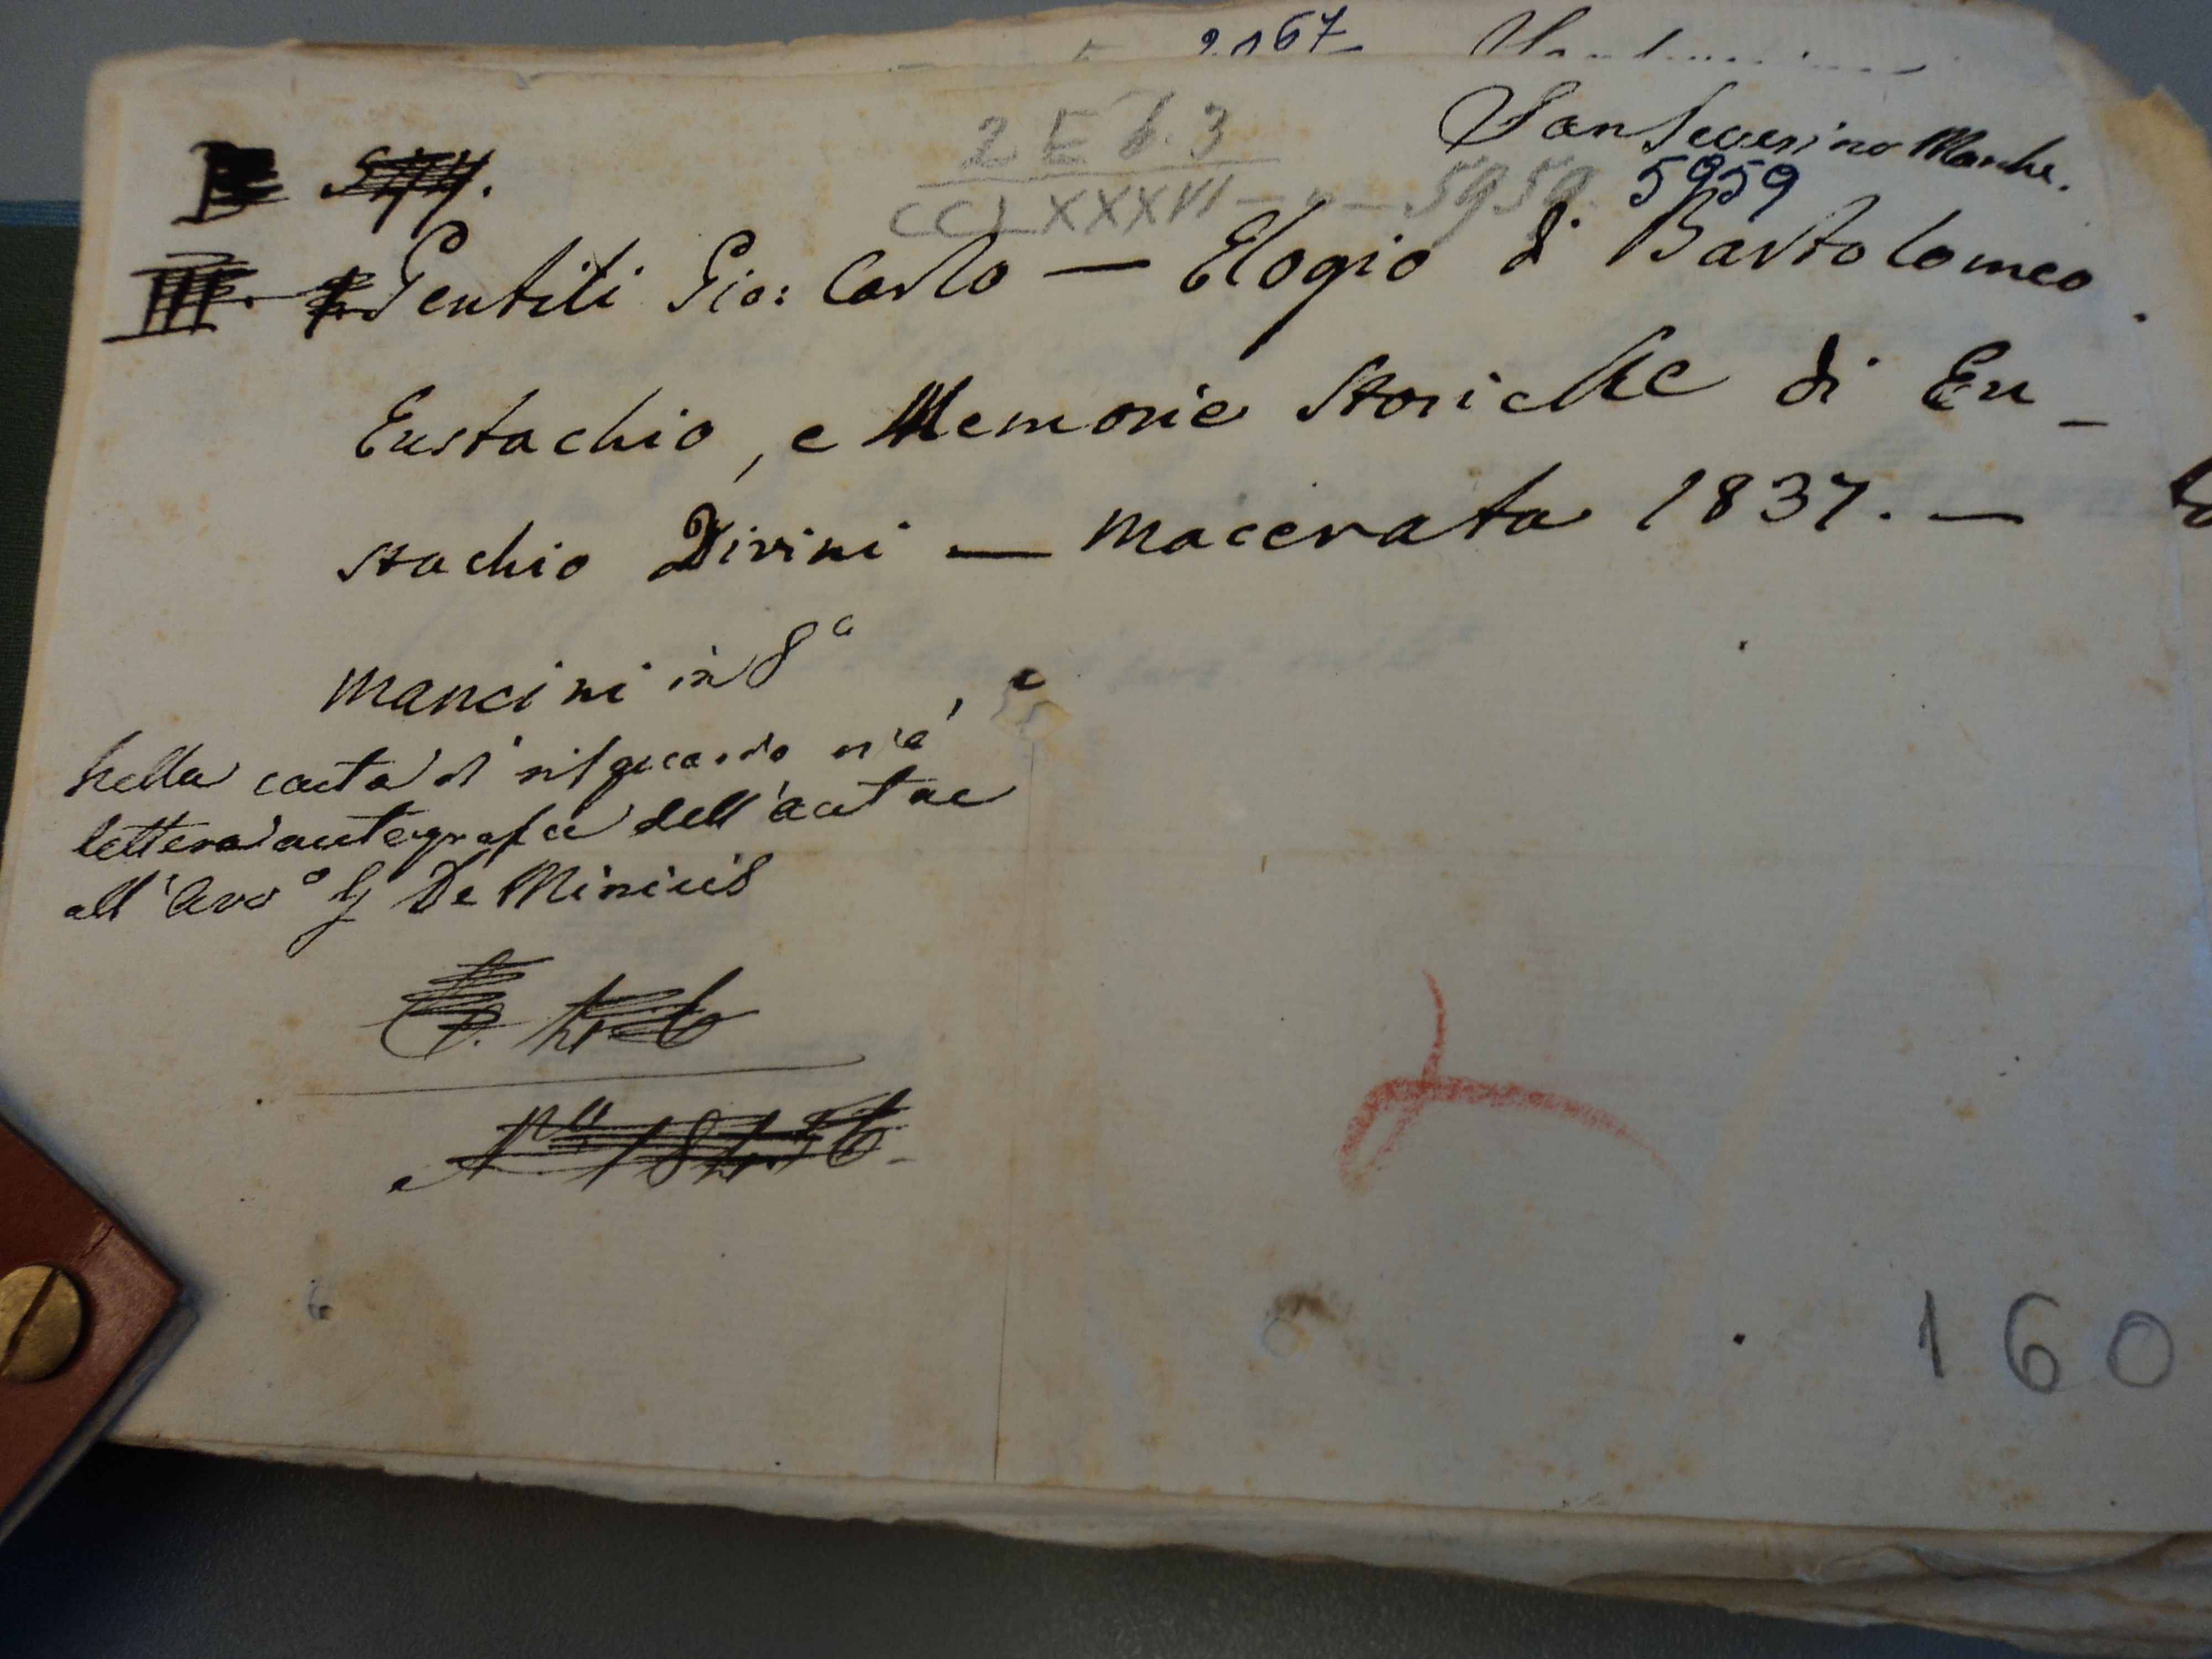 2167
2 E 6.3
San Severino Marche.
CCLXXXVI — n — 5959. 5959
III. Gentili Gio: Carlo — Elogio di Bartolomeo
Eustachio, e Memorie Storiche di Eu-
stachio Divini — Macerata 1837. —
Mancini in 8°
Nella carta di risguardo v'è
lettera autografa dell'autore
all'Avv° G De Minicis
160